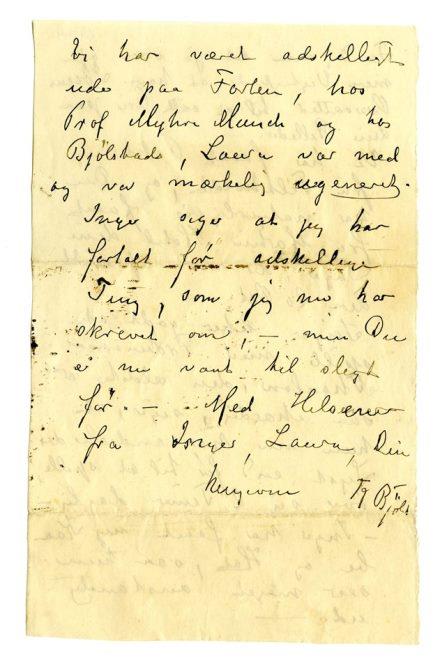 Vi har været adskelligt
ude paa Forten, hos
Prof Myhre Munch og hos
Bjölstads, Laura var med
og var mærkelig ugeneret.
Inger siger at jeg har
fortalt før adskellige
Ting, som jeg nu har
skrevet om; – men Du
er nu vant til sligt
før. – Med Hilsener
fra Inger, Laura, Din